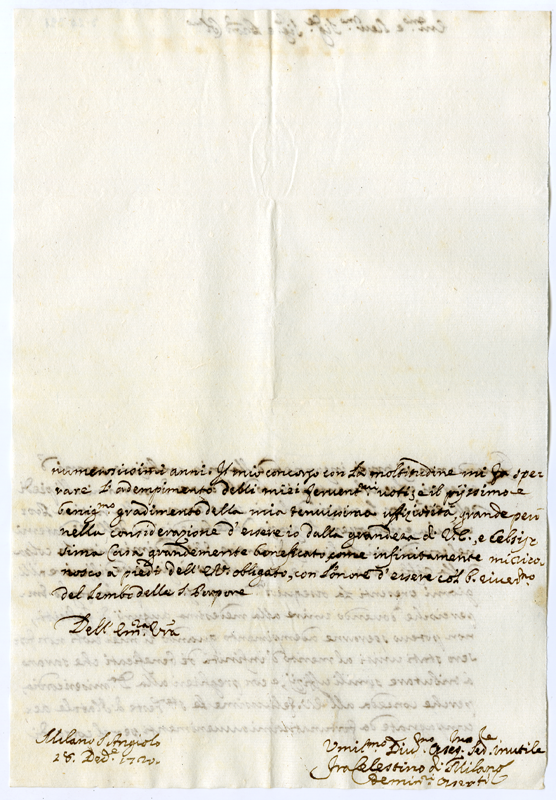 numerosissimi anni. Il mio concorso con la moltitudine mi fa spe-
rare l'adempimento delli miei ferventmi voti, e il pijssimo e
benigmo gradimento della mia tenuissima uffiziosità, grande però
nella considerazione d'essere io dalla grandezza di V.E., e Celsis-
sima Casa grandemente beneficato, come infinitamente mi rico-
nosco a piedi dell'E.V. obligato, con l'onore d'essere col b. riveremo
del Lembo della S. Porpore
Dell'Emza Vra
Milano S. Angiolo
28. Dece 1720.
Umilmo Divmo Osseqmo Fed. Inutile
Fra Celestino di Milano
de Min.ri Osserti